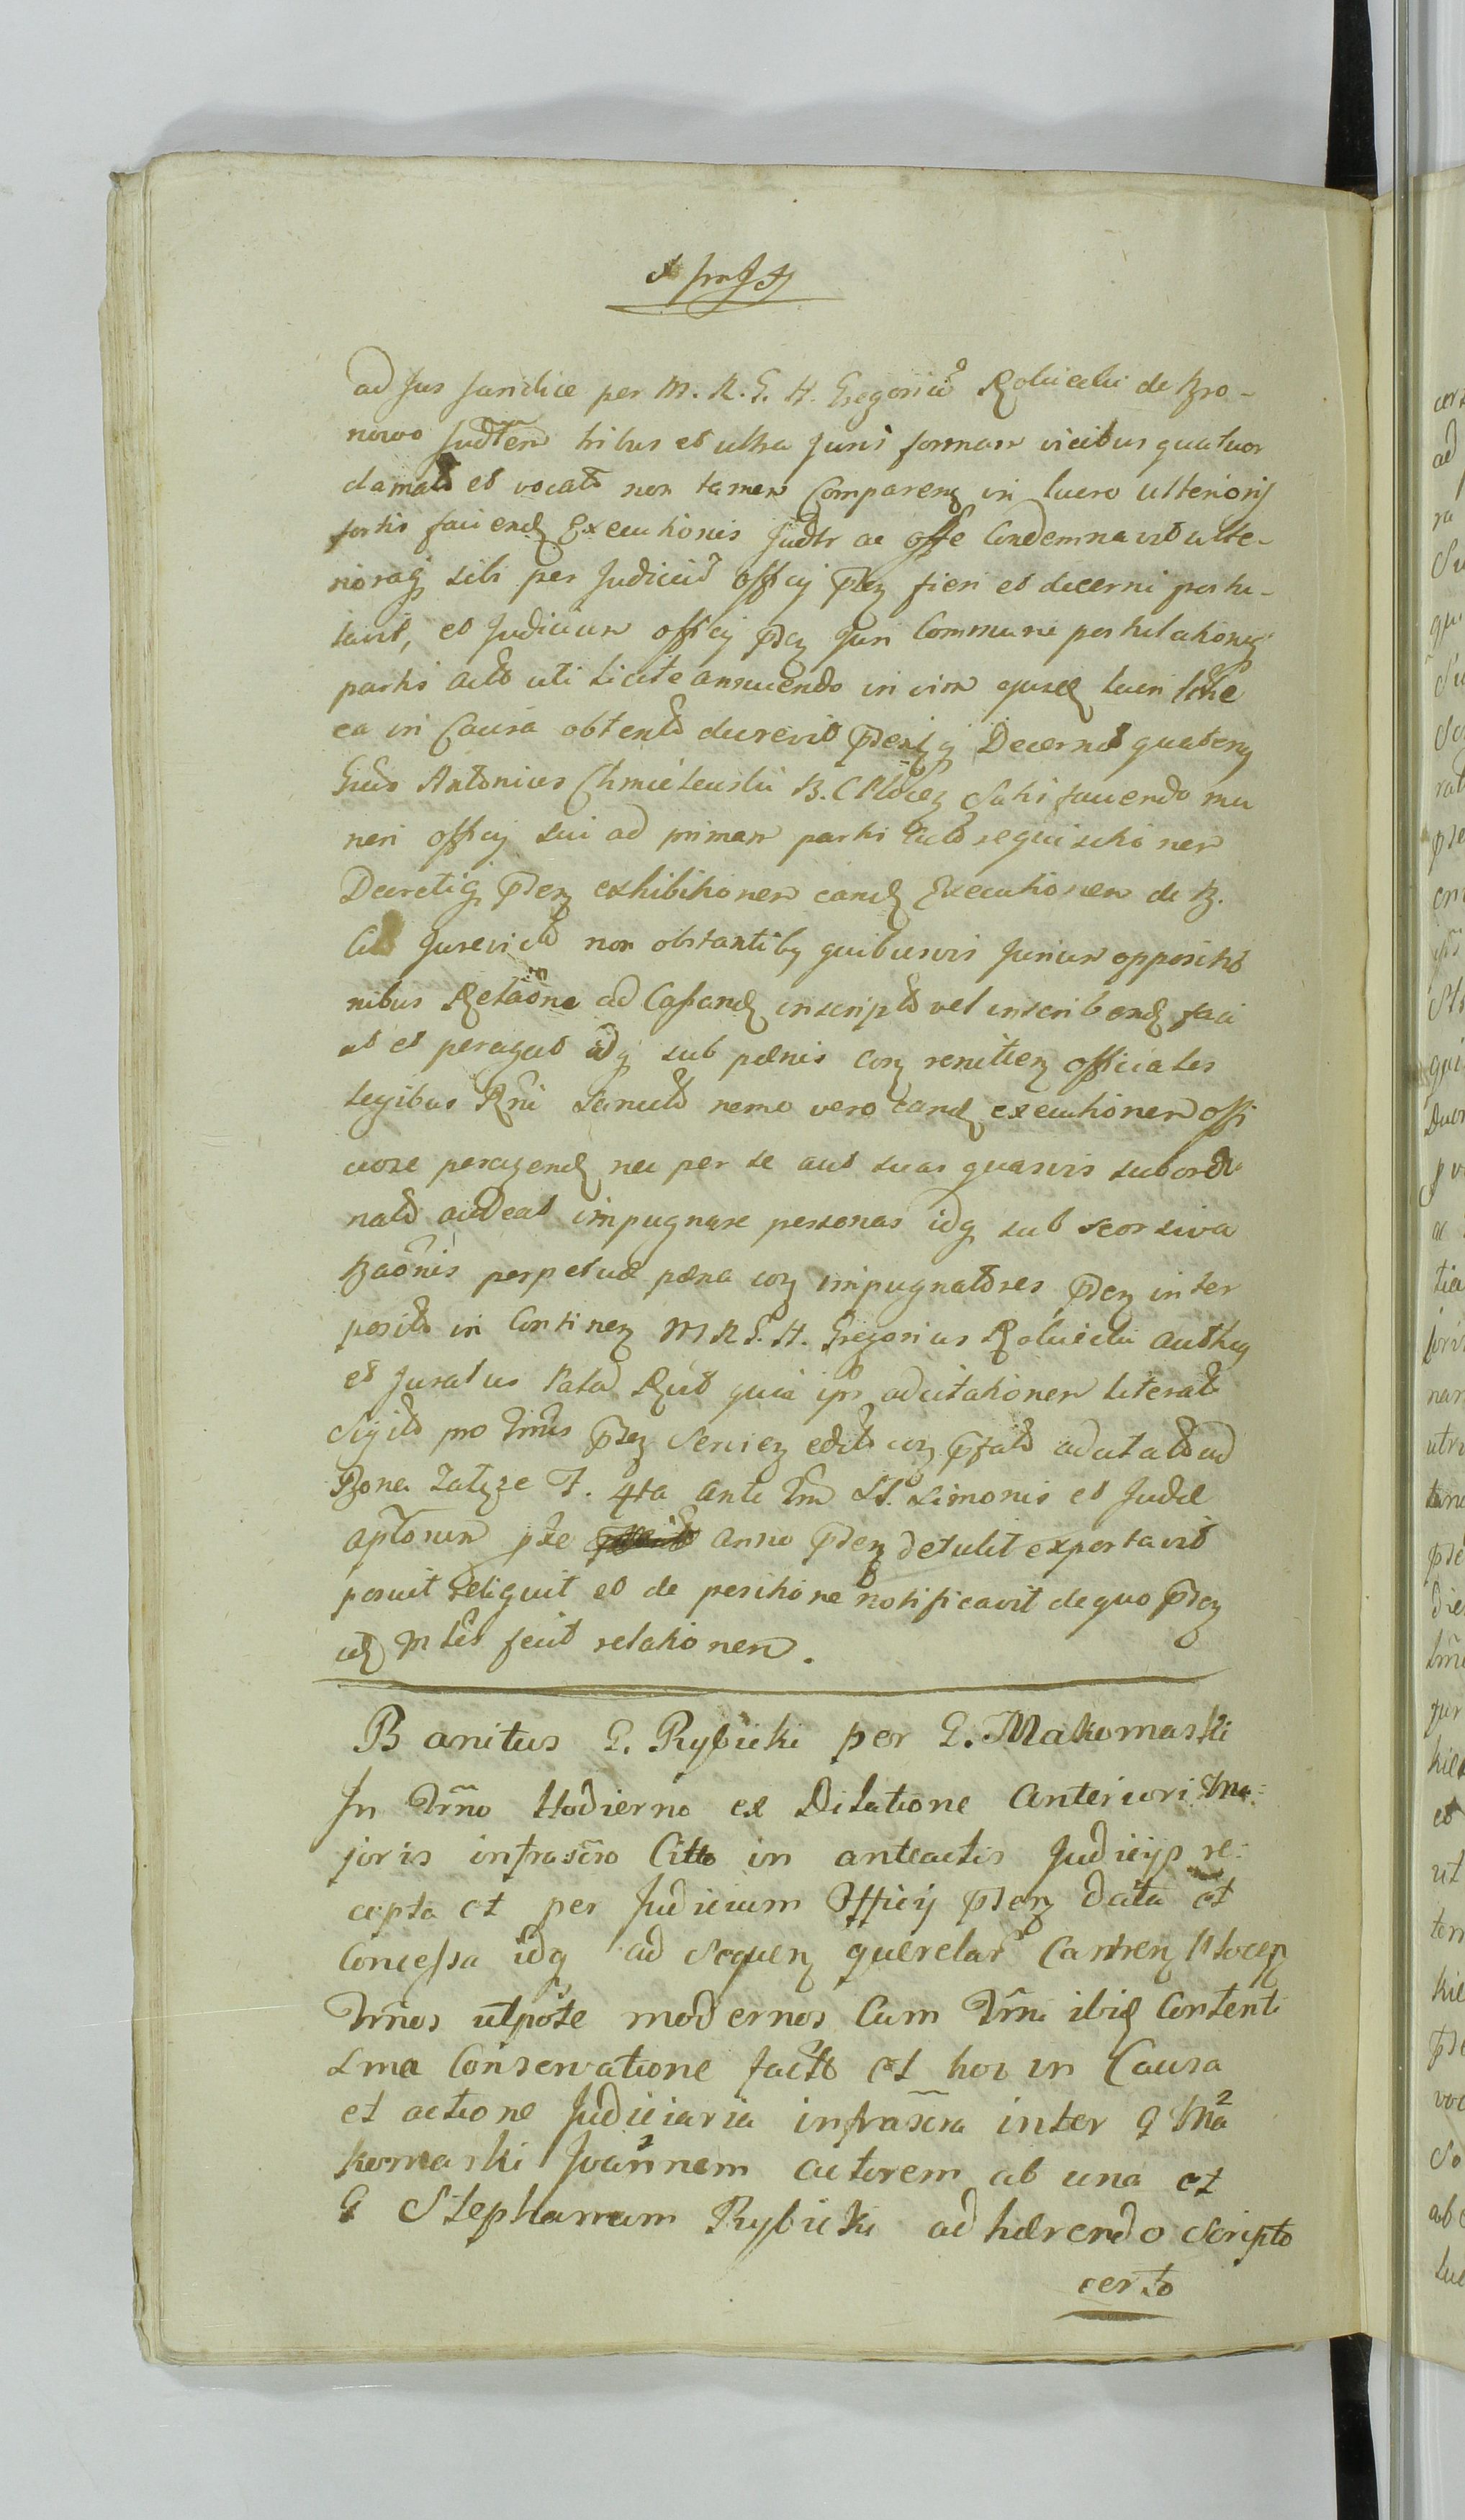 ad Jus Juridice per M. R. G. H. Gregoriu Rolwiecki de Bro-
nowo Judten tribus et ultra Juris formam vicibus quatuor
clamato et vocato non tamen Comparenz in lucro ulterioris
fortis faciendz Executionis Judtr ac offe Condemnavit ulte-
rioraqz sibi per Judiciu officij pdenz fieri et decerni postu-
lavit, et Judicium officij pdenz Juri Communi postulationiqz
partis acto uti licite annuendo in vim ejusdz lucri
ea in Causa obtento decrevit pdenz Decernit quatenz
Gndo Antonius Chmielewski B. C. Plocenz satisfaciendo mu
neri officij sui ad primam partis acto requisitionem
Decretiqz pdenz exhibitionem eandz Executionem de B.
Cit Jurevicto non obstantibz quibusvis Jurium oppositio
nibus Relaõne ad Cassandz inscripto vel inscribendz faci
at et peragat idqz sub pœnis conz renitenz officiales
legibus Rni sancito nemo vero eandz executionem offi
ciose peragendz nec per se aut suas quasvis subordi
nato audeat impugnare personas idqz sub seorsiva
Baõnis perpetuæ pœna conz impugnatores pdenz inter
posito in Continenz M R G. H. Gregorius Rolwiecki authcy
et Juratus Palad Rcit quia ips adcitationem literato
Sigilto pro Tmis pdenz Servienz edito conz pfato adcitato ad
Bona Zalęze F. 4ta ante Fm SS. Simonis et Judæ
aptorum pte anno pdenz detulit exportavit
posuit reliquit et de positione notificavit de quo pdenz
idz Mtis fecit relationem.
Banitus G. Rybicki per G. Makomaski
In Trmo Hodierno ex Dilatione Anteriori Ma:
joris infrascro Citto in anteactis Judicijs re:
cepta et per Judicium Officij pdenz data et
Concessa idqz ad Sequenz querelar Castrenz Plocenz
Trmos utpote modernos Cum Trmi ibidz Contenti
Lma Conservatione facto et hoc in Causa
et actione Judiciaria infrascra inter G Ma
komaski Joannem actorem ab una et
G Stephanum Rybicki adhærendo Scripto
certo